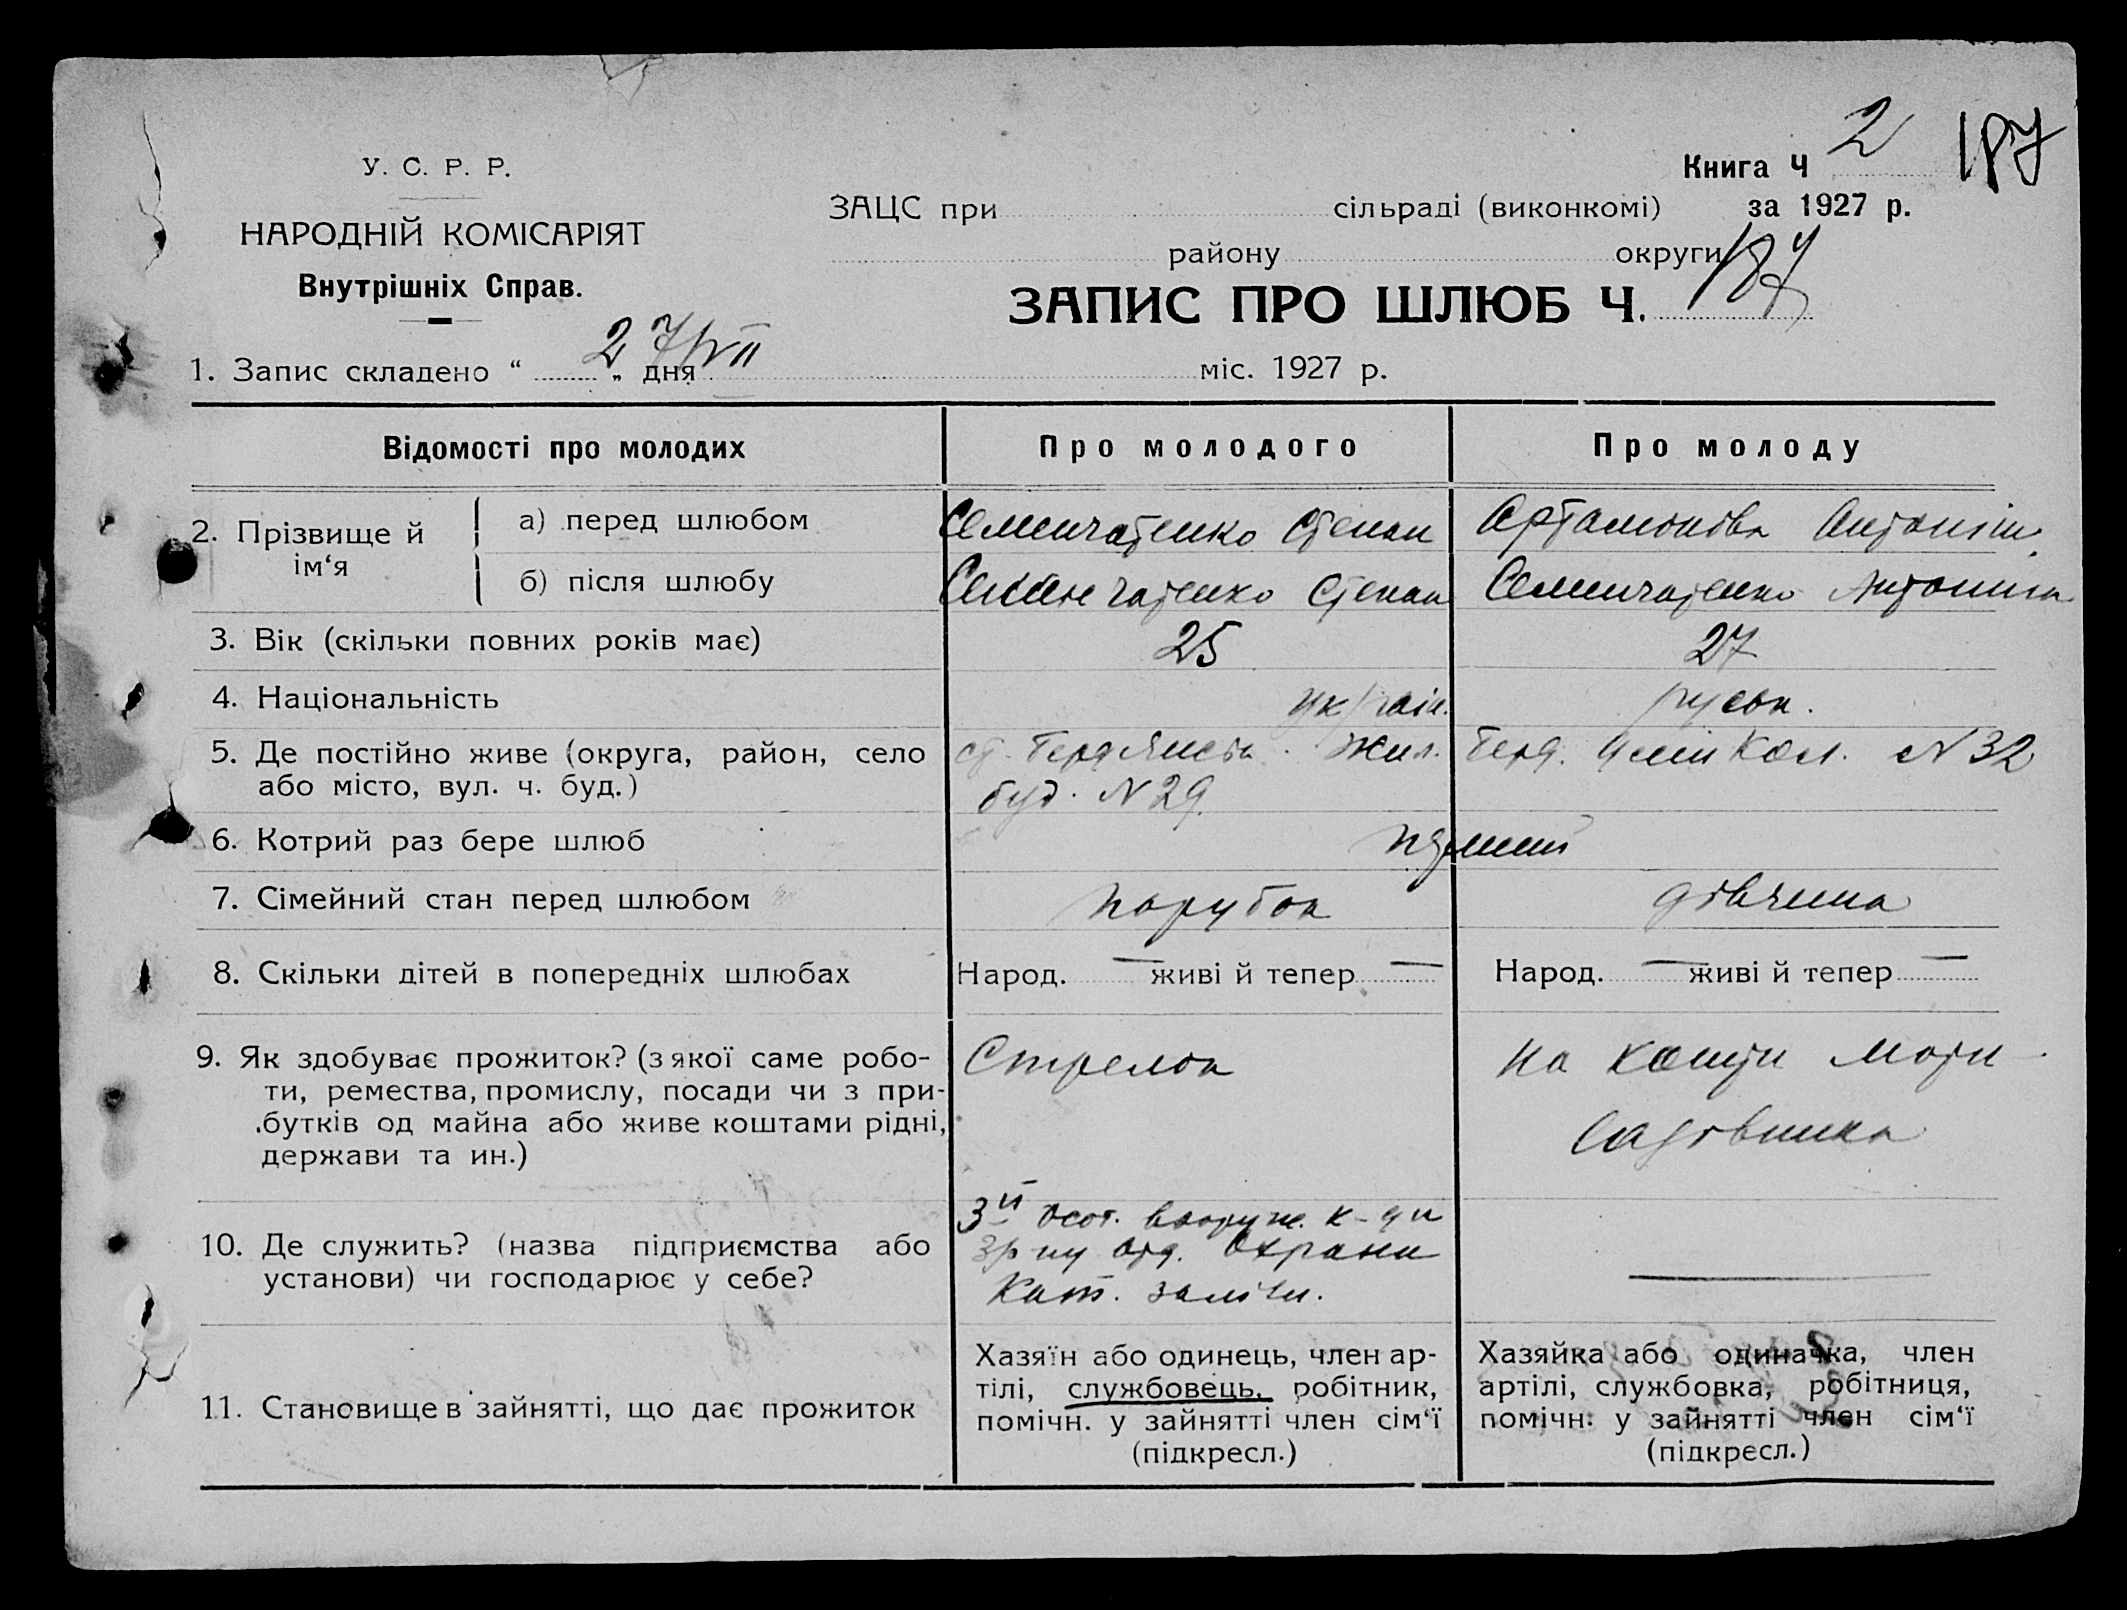 У. С. Р. Р.
НАРОДНІЙ КОМІСАРІЯТ
Внутрішніх Справ.
Книга Ч 2 187
ЗАЦС при сільраді (виконкомі) за 1927 р.
району округи
ЗАПИС ПРО ШЛЮБ Ч. 187
1. Запис складено “ 27/VII „ дня міс. 1927 р.
Відомості про молодих Про молодого Про молоду
2. Прізвище й ім‘я
а) перед шлюбом Семенчатенко Степан Артамонова Антонін
б) після шлюбу Семенчатенко Степан Семенчатенко Антонина
3. Вік (скільки повних років має) 25 27
4. Національність україн. руськ.
5. Де постійно живе (округа, район, село ст. Бердянськ. Жил. Берд. Кол. N 32
або місто, вул. ч. буд.) буд. N 29.
6. Котрий раз бере шлюб
7. Сімейний стан перед шлюбом парубок дівчина
8. Скільки дітей в попередніх шлюбах Народ. — живі й тепер — Народ. — живі й тепер —
9. Як здобуває прожиток? (з якої саме робо-
ти, ремества, промислу, посади чи з при-
бутків од майна або живе коштами рідні,
держави та ин.)
Стрелок
на кошти мати
10. Де служить? (назва підприємства або
установи) чи господарює у себе?
3й вооруж. к-ди
отд. Охрани
Кат. залізн.
11. Становище в зайнятті, що дає прожиток
Хазяїн або одинець, член ар-
тілі, службовець, робітник,
помічн. у зайнятті член сім‘ї
(підкресл.)
Хазяйка або одиначка, член
артілі, службовка, робітниця,
помічн. у зайнятті член сім‘ї
(підкресл.)